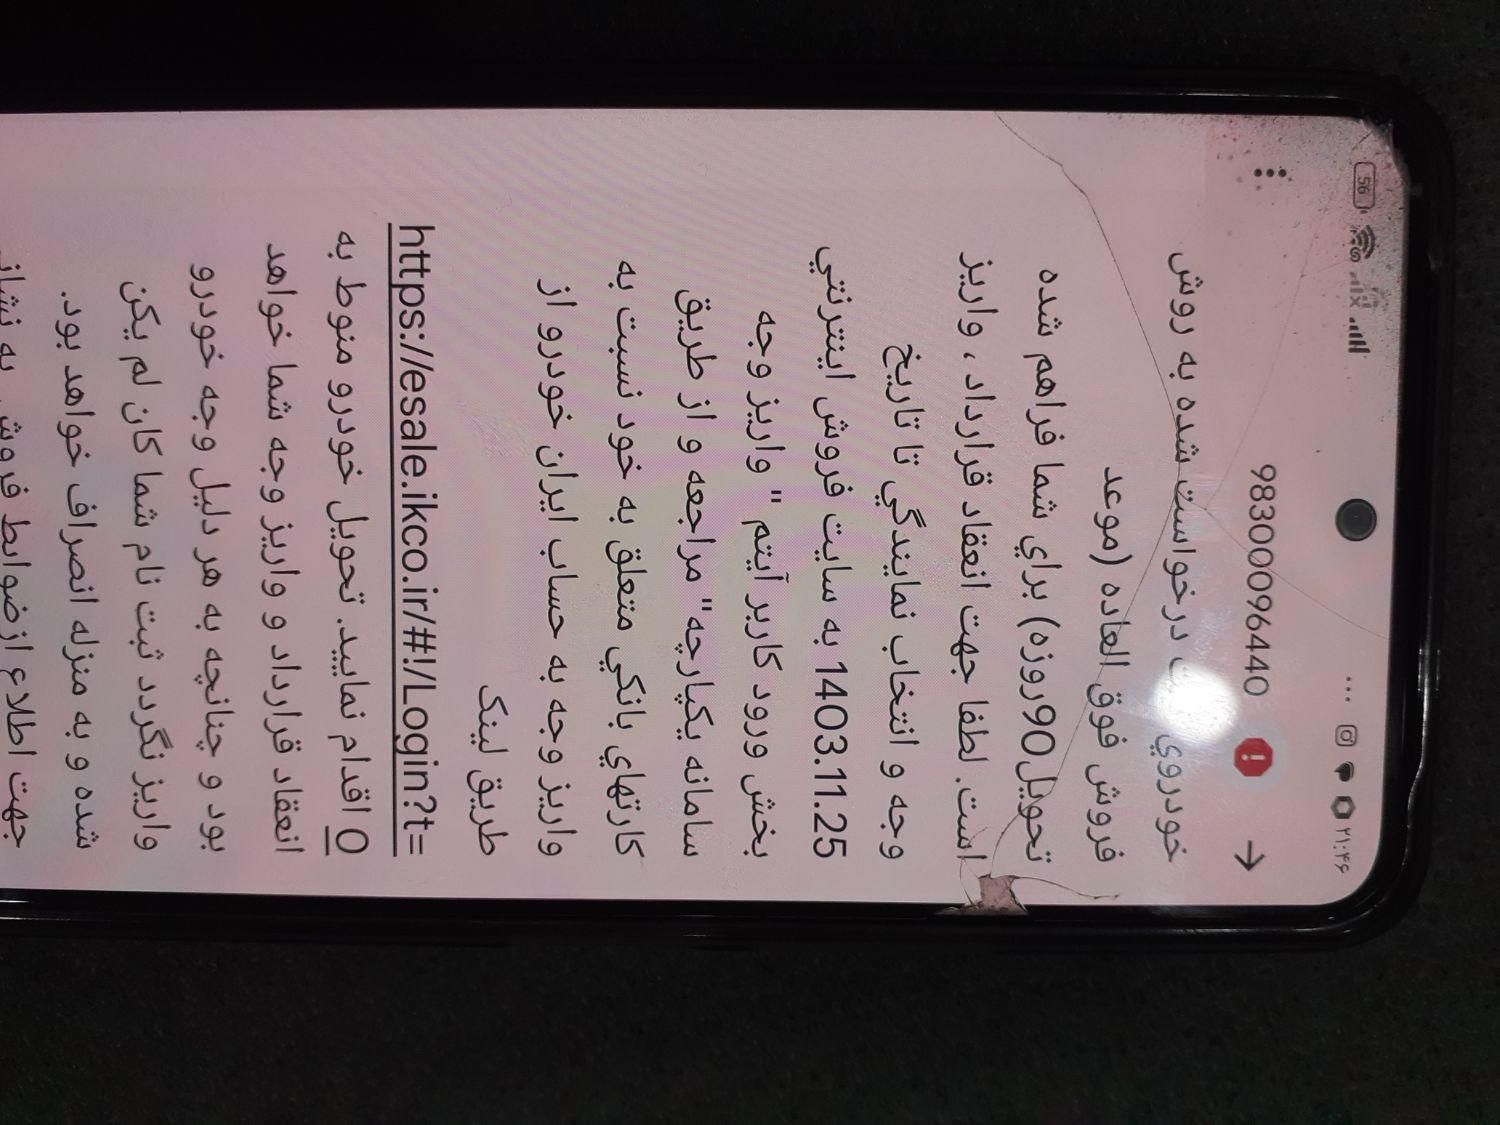 ۲۱:۴۶
56
98300096440
خودروي درخواست شده به روش
فروش فوق العاده (موعد
تحويل90روزه) براي شما فراهم شده
است. لطفا جهت انعقاد قرارداد ، واريز
وجه و انتخاب نمايندگي تا تاريخ
1403.11.25 به سايت فروش اينترنتي
بخش ورود كاربر آيتم " واريز وجه
سامانه يكپارچه" مراجعه و از طريق
كارتهاي بانكي متعلق به خود نسبت به
واريز وجه به حساب ايران خودرو از
طريق لينک
https://esale.ikco.ir/#!/Login?t=
0 اقدام نماييد. تحويل خودرو منوط به
انعقاد قرارداد و واريز وجه شما خواهد
بود و چنانچه به هر دليل وجه خودرو
واريز نگردد ثبت نام شما كان لم يكن
شده و به منزله انصراف خواهد بود.
جهت اطلاع از ضوابط فروش به